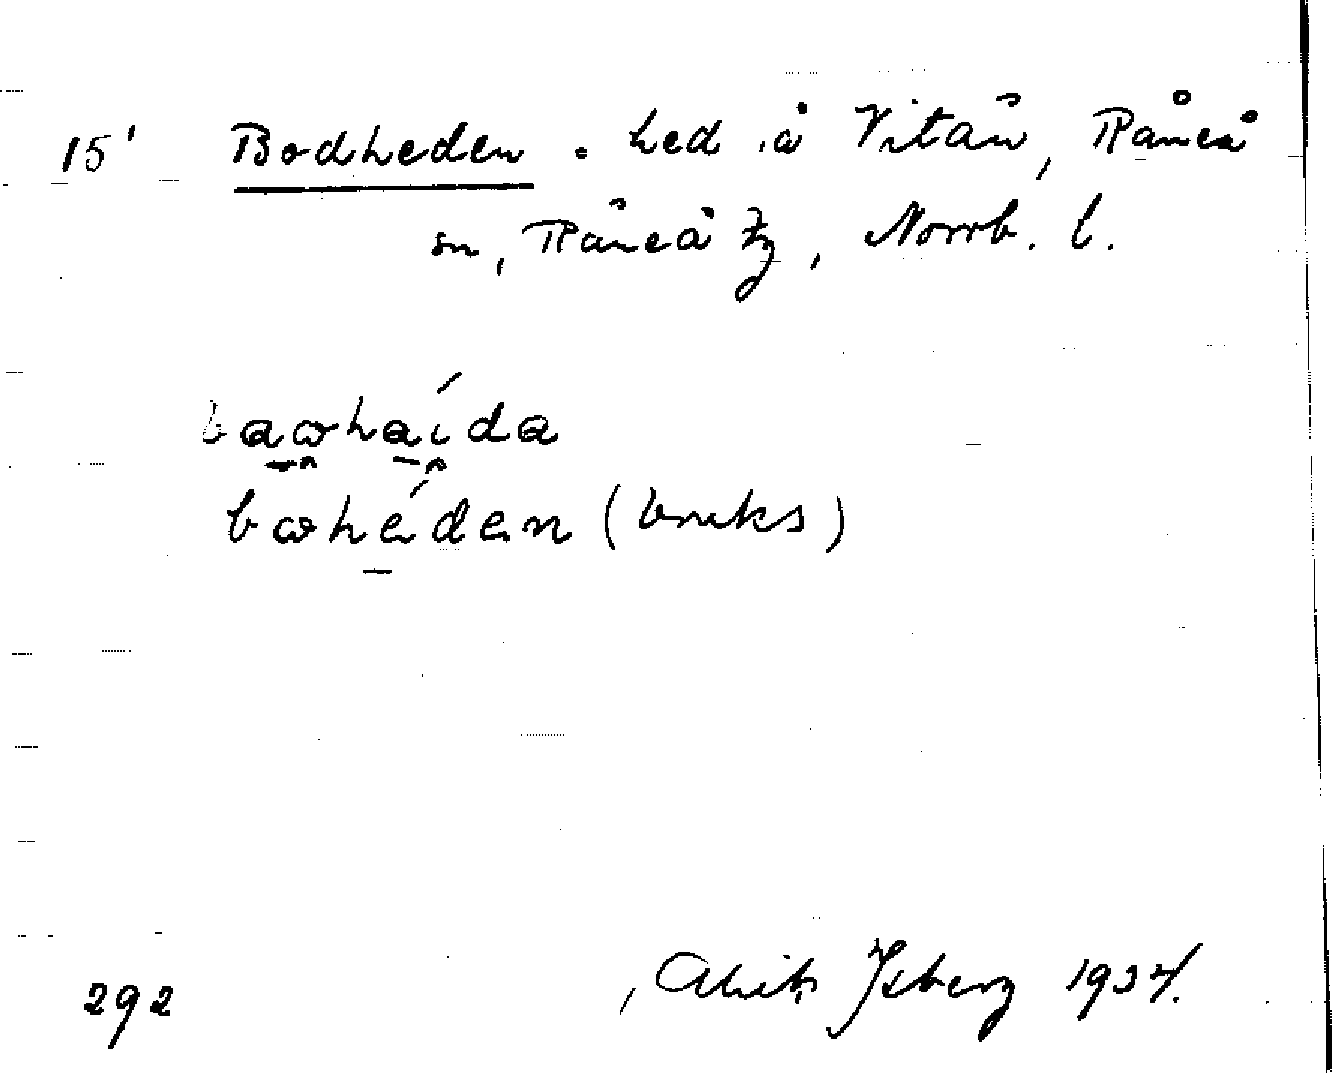 15' Bodheden. hed å Vitån, Råneå
sn, Råneå tg, Norrb. l.
baωhaída
bωhéden (bruks)
292 Alvik Isberg 1934.